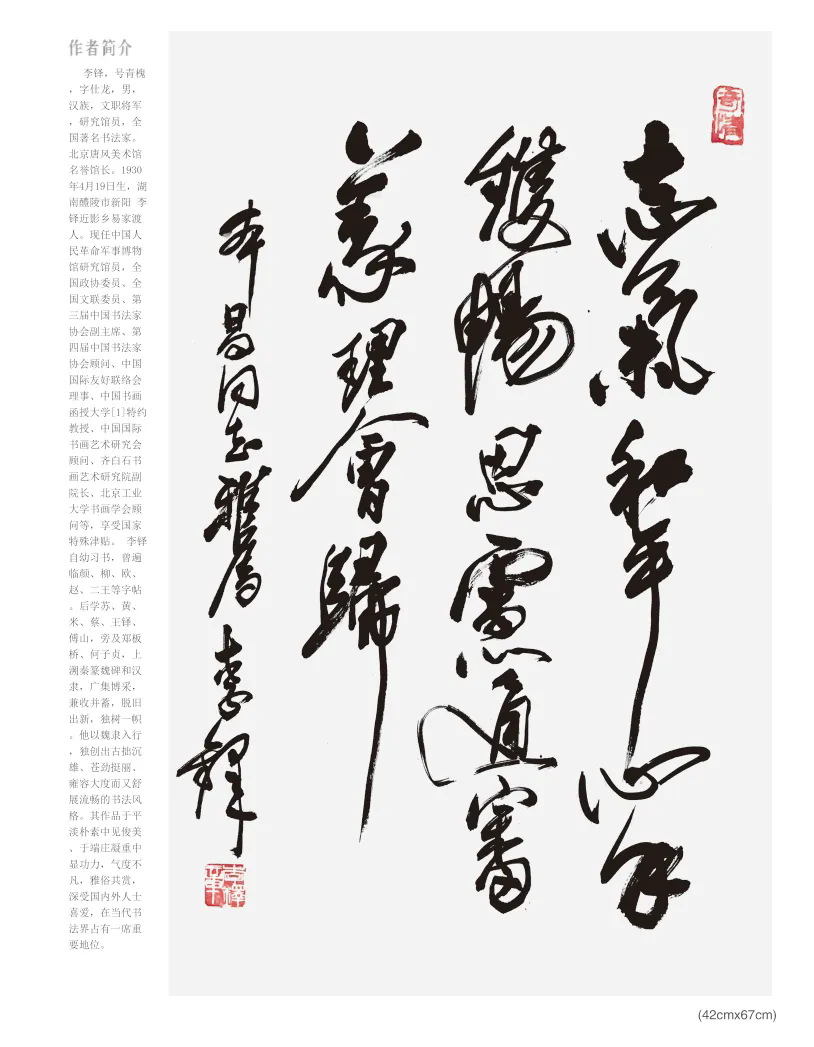 作者简介
李铎，号青槐
，字仕龙，男，
汉族，文职将军
，研究馆员，全
国著名书法家。
北京唐风美术馆
名誉馆长。1930
年4月19日生，湖
南醴陵市新阳 李
铎近影乡易家渡
人。现任中国人
民革命军事博物
馆研究馆员，全
国政协委员、全
国文联委员、第
三届中国书法家
协会副主席、第
四届中国书法家
协会顾问、中国
国际友好联络会
理事、中国书画
函授大学[1]特约
教授、中国国际
书画艺术研究会
顾问、齐白石书
画艺术研究院副
院长、北京工业
大学书画学会顾
问等，享受国家
特殊津贴。 李铎
自幼习书，曾遍
临颜、柳、欧、
赵、二王等字帖
。后学苏、黄、
米、蔡、王铎、
傅山，旁及郑板
桥、何子贞，上
溯秦篆魏碑和汉
隶，广集博采，
兼收并蓄，脱旧
出新，独树一帜
。他以魏隶入行
，独创出古拙沉
雄、苍劲挺丽、
雍容大度而又舒
展流畅的书法风
格。其作品于平
淡朴素中见俊美
、于端庄凝重中
显功力，气度不
凡，雅俗共赏，
深受国内外人士
喜爱，在当代书
法界占有一席重
要地位。
志氣和平心身
暢思慮通審
義理會歸
本昌同志雅属 李鐸
(42cmx67cm)